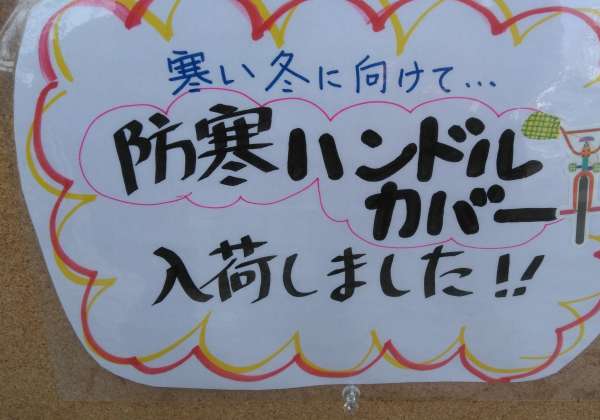 寒い冬に向けて…
防寒ハンドル
カバー
入荷しました!!